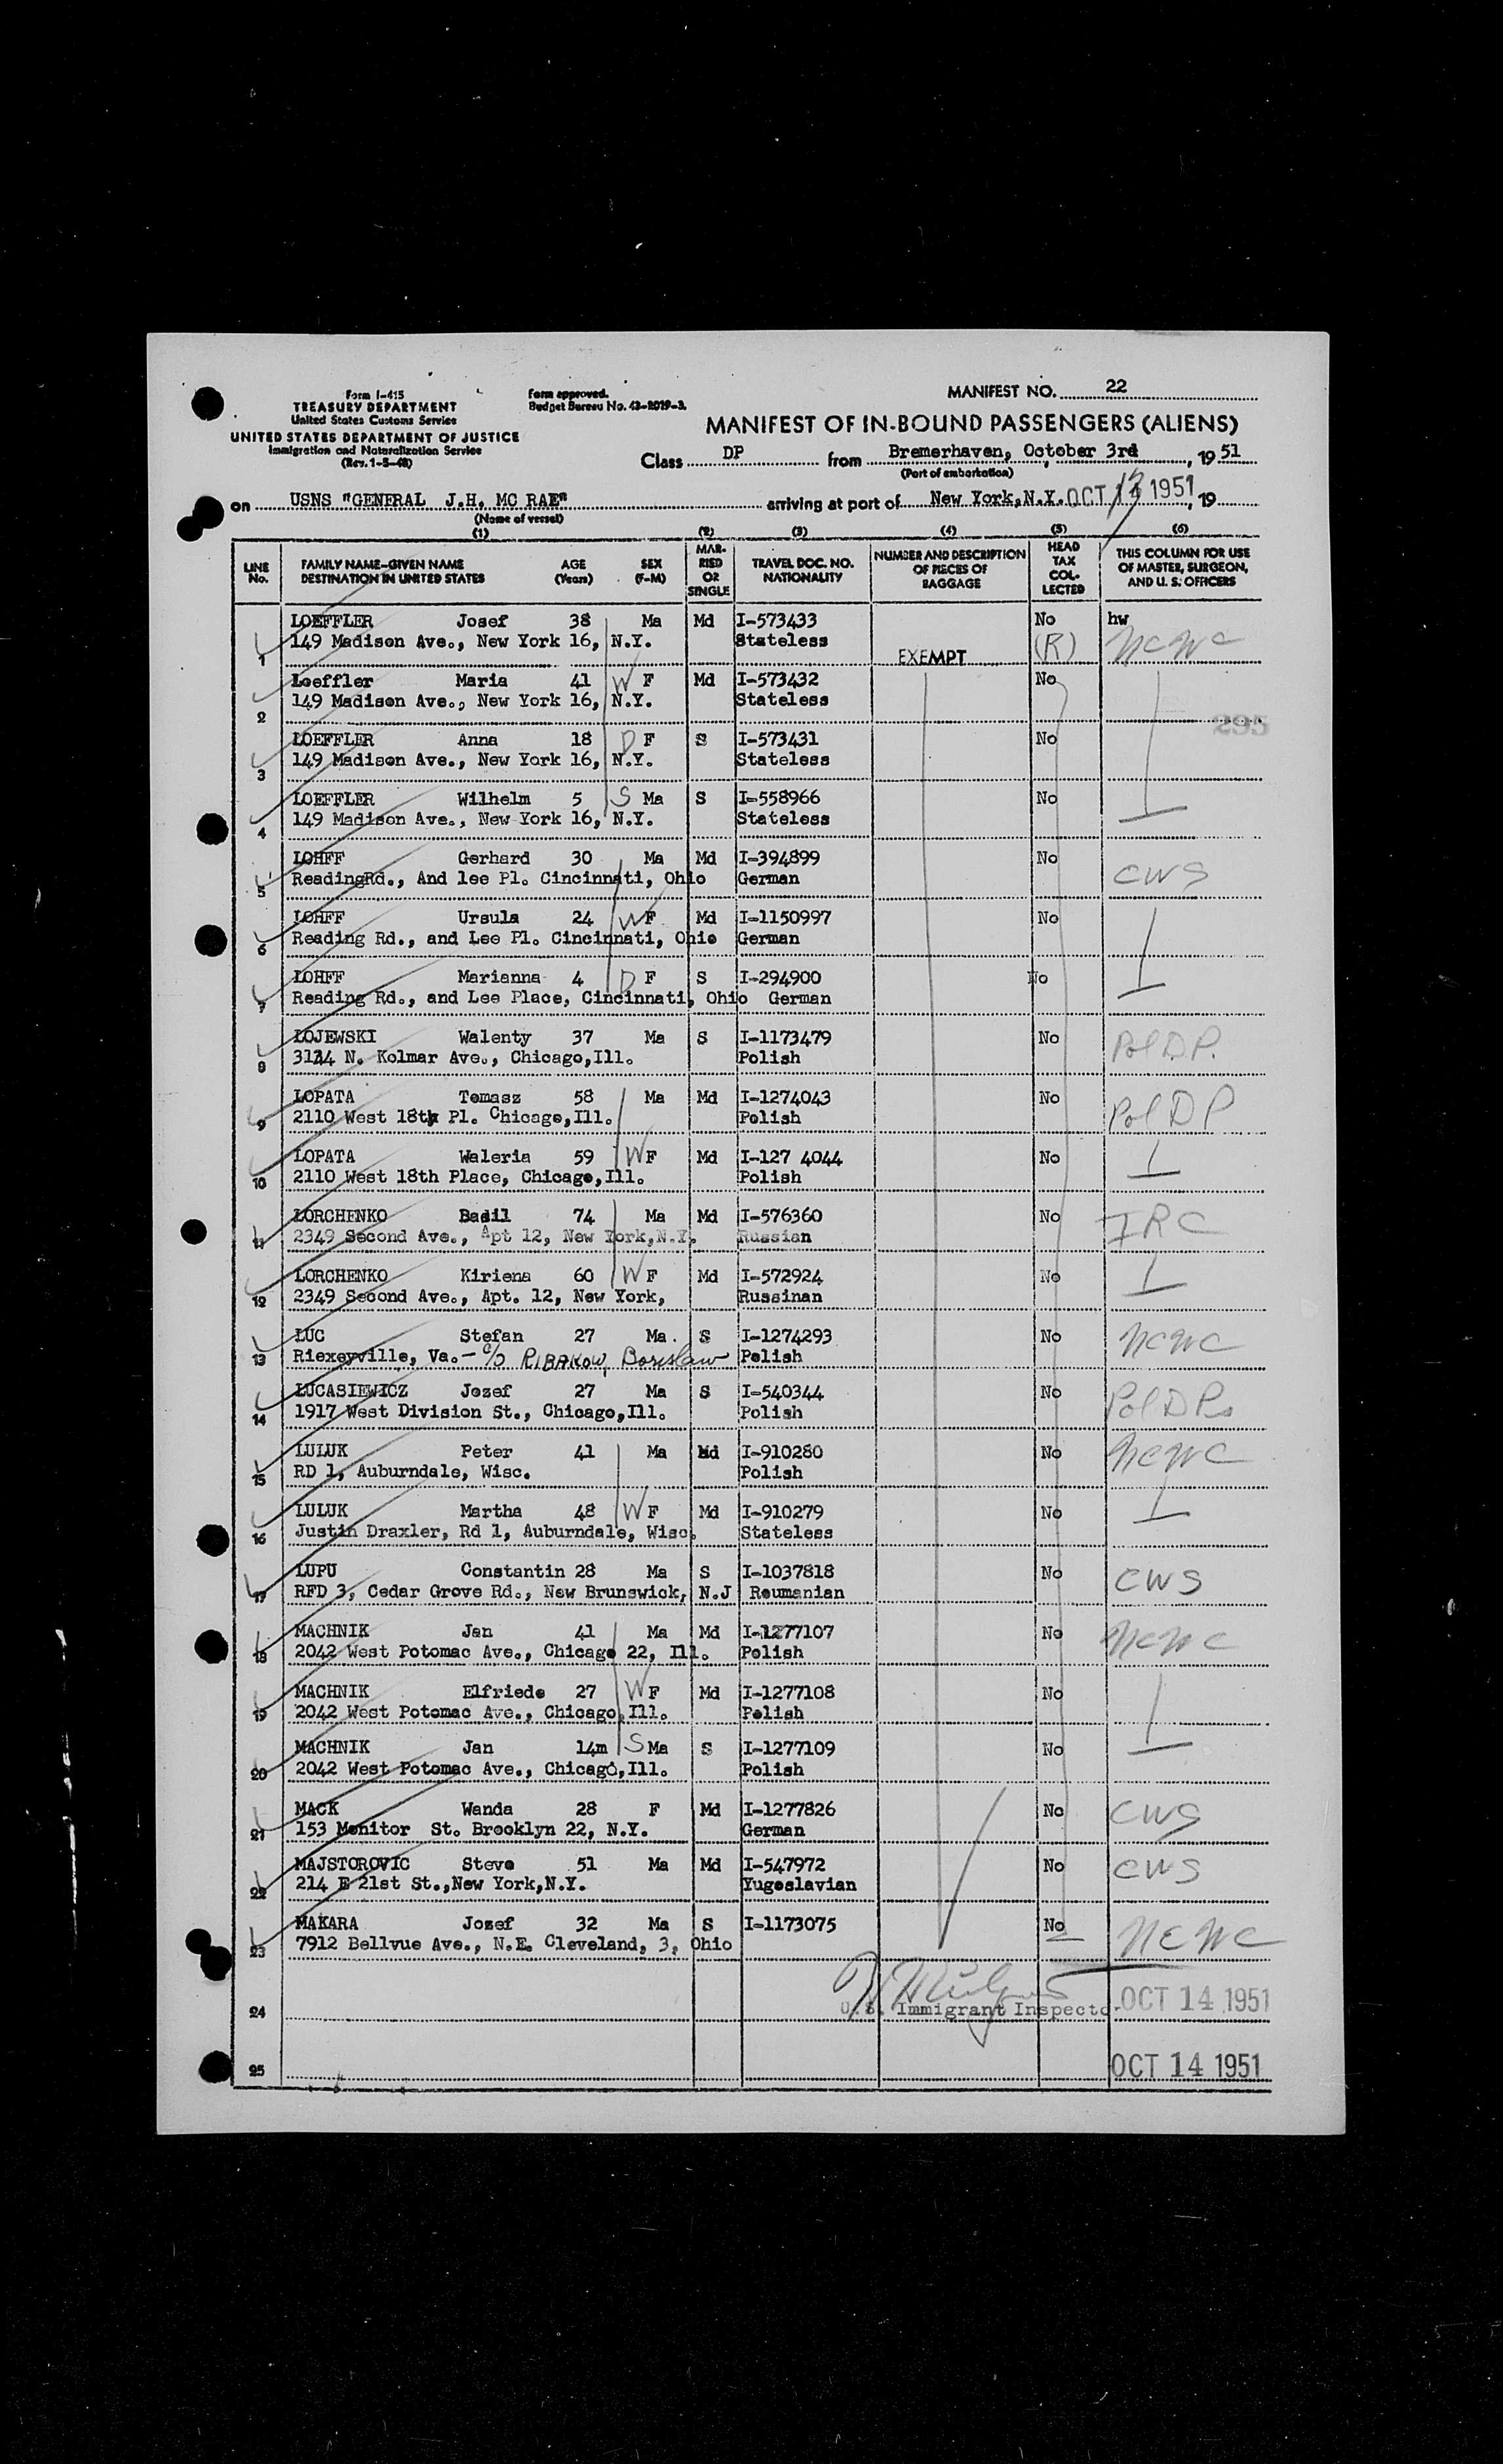 Form I-415
TREASURY DEPARTMENT
United States Customs Service
UNITED STATES DEPARTMENT OF JUSTICE
Immigration and Naturalization Service
(Rev. 1-5-48)
Form approved.
Budget Bureau No. 43-R019-3.
MANIFEST NO. 22
MANIFEST OF IN-BOUND PASSENGERS (ALIENS)
Class DP from Bremerhaven, October 3rd, 1951
(Port of embarkation)
on USNS "GENERAL J.H. MC RAE" arriving at port of New York,N.Y. OCT 13 1951, 19
(Name of vessel)
(1) (2) (3) (4) (5) (6)
LINE No. FAMILY NAME-GIVEN NAME DESTINATION IN UNITED STATES AGE (Years) SEX (F-M) MARRIED OR SINGLE TRAVEL DOC. NO. NATIONALITY NUMBER AND DESCRIPTION OF PIECES OF BAGGAGE HEAD TAX COLLECTED THIS COLUMN FOR USE OF MASTER, SURGEON, AND U. S. OFFICERS
LOEFFLER Josef 38 Ma Md I-573433 No hw
1 149 Madison Ave., New York 16, N.Y. Stateless EXEMPT (R) NCWC
Loeffler Maria 41 W F Md I-573432 No
2 149 Madison Ave., New York 16, N.Y. Stateless
295
LOEFFLER Anna 18 D F S I-573431 No
3 149 Madison Ave., New York 16, N.Y. Stateless
LOEFFLER Wilhelm 5 S Ma S I-558966 No
4 149 Madison Ave., New York 16, N.Y. Stateless
LOHFF Gerhard 30 Ma Md I-394899 No
5 ReadingRd., And lee Pl. Cincinnati, Ohio German CWS
LOHFF Ursula 24 W F Md I-1150997 No
6 Reading Rd., and Lee Pl. Cincinnati, Ohio German
LOHFF Marianna 4 D F S I-294900 No
7 Reading Rd., and Lee Place, Cincinnati, Ohio German
LOJEWSKI Walenty 37 Ma S I-1173479 No Pol D.P.
8 3134 N. Kolmar Ave., Chicago,Ill. Polish
LOPATA Tomasz 58 Ma Md I-1274043 No Pol DP
9 2110 West 18th Pl. Chicago,Ill. Polish
LOPATA Waleria 59 W F Md I-127 4044 No
10 2110 West 18th Place, Chicago,Ill. Polish
LORCHENKO Basil 74 Ma Md I-576360 No IRC
11 2349 Second Ave., Apt 12, New York,N.Y. Russian
LORCHENKO Kiriena 60 W F Md I-572924 No
12 2349 Second Ave., Apt. 12, New York, Russinan
LUC Stefan 27 Ma. S I-1274293 No NCWC
13 Riexeyville, Va.- c/o RIBAKOW, Borislaw Polish
LUCASIEWICZ Jozef 27 Ma S I-540344 No Pol DPs
14 1917 West Division St., Chicago,Ill. Polish
LULUK Peter 41 Ma Md I-910280 No NCWC
15 RD 1, Auburndale, Wisc. Polish
LULUK Martha 48 W F Md I-910279 No
16 Justin Draxler, Rd 1, Auburndale, Wisc. Stateless
LUPU Constantin 28 Ma S I-1037818 No CWS
17 RFD 3, Cedar Grove Rd., New Brunswick, N.J Roumanian
MACHNIK Jan 41 Ma Md I-1277107 No NCWC
18 2042 West Potomac Ave., Chicago 22, Ill. Polish
MACHNIK Elfriede 27 W F Md I-1277108 No
19 2042 West Potomac Ave., Chicago,Ill. Polish
MACHNIK Jan 14m S Ma S I-1277109 No
20 2042 West Potomac Ave., Chicago,Ill. Polish
MACK Wanda 28 F Md I-1277826 No CWS
21 153 Monitor St. Brooklyn 22, N.Y. German
MAJSTOROVIC Steve 51 Ma Md I-547972 No CWS
22 214 E 21st St.,New York,N.Y. Yugoslavian
MAKARA Jozef 32 Ma S I-1173075 No NCWC
23 7912 Bellvue Ave., N.E. Cleveland, 3, Ohio
24 U.S. Immigrant Inspecto. OCT 14 1951
25 OCT 14 1951